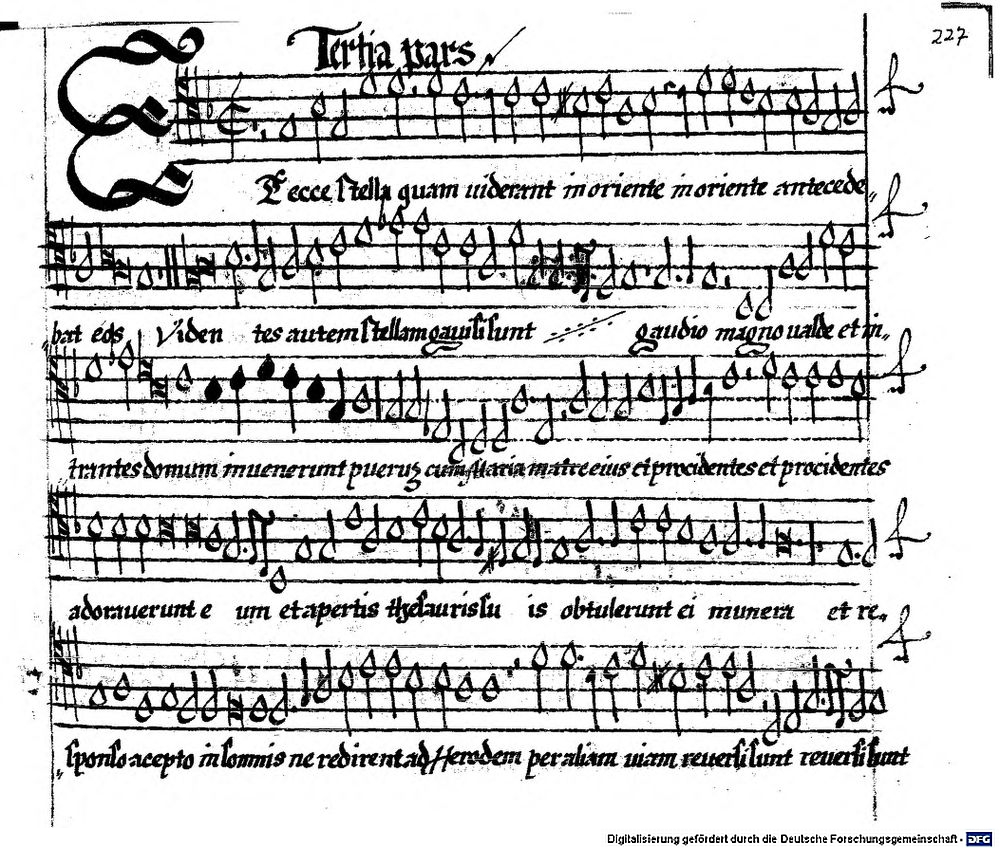 227
Tertia pars
Et ecce stella quam uiderant in oriente in oriente antecede
bat eos Viden tes autem stellam gauisi sunt gaudio magno ualde et in
trantes domum inuenerunt pueruz cum Maria matre eius et procidentes et procidentes
adorauerunt e um et apertis thesauris su is obtulerunt ei munera et re
sponso acepto in somnis ne redirent ad Herodem per aliam uiam reuersi sunt reuersi sunt
Digitalisierung gefördert durch die Deutsche Forschungsgemeinschaft - DFG